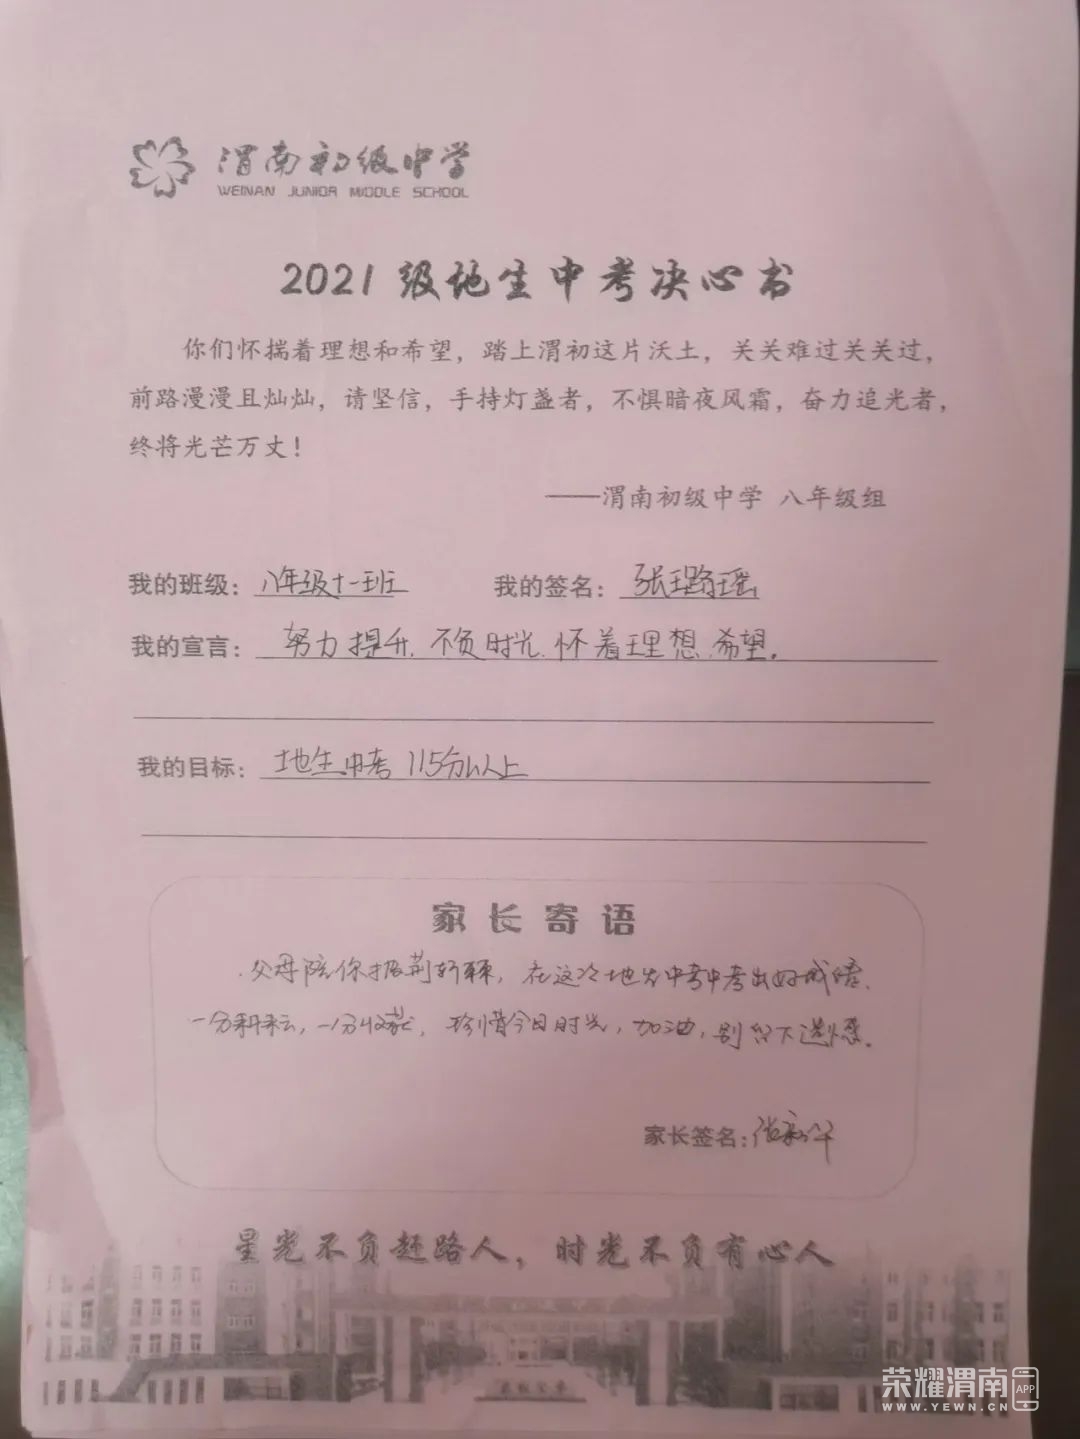 渭南初级中学
WEINAN JUNIOR MIDDLE SCHOOL
2021级地生中考决心书
你们怀揣着理想和希望，踏上渭初这片沃土，关关难过关关过，
前路漫漫且灿灿，请坚信，手持灯盏者，不惧暗夜风霜，奋力追光者，
终将光芒万丈！
——渭南初级中学 八年级组
我的班级：八年级十一班 我的签名：张璐瑶
我的宣言：努力提升.不负时光.怀着理想.希望.
我的目标：地生中考 115分以上
家长寄语
父母陪你披荆斩棘，在这次地生中考中考出好成绩.
一分耕耘，一分收获，珍惜今日时光，加油，别留下遗憾。
家长签名：张
星光不负赶路人，时光不负有心人
荣耀渭南 APP
WWW.YEWN.CN